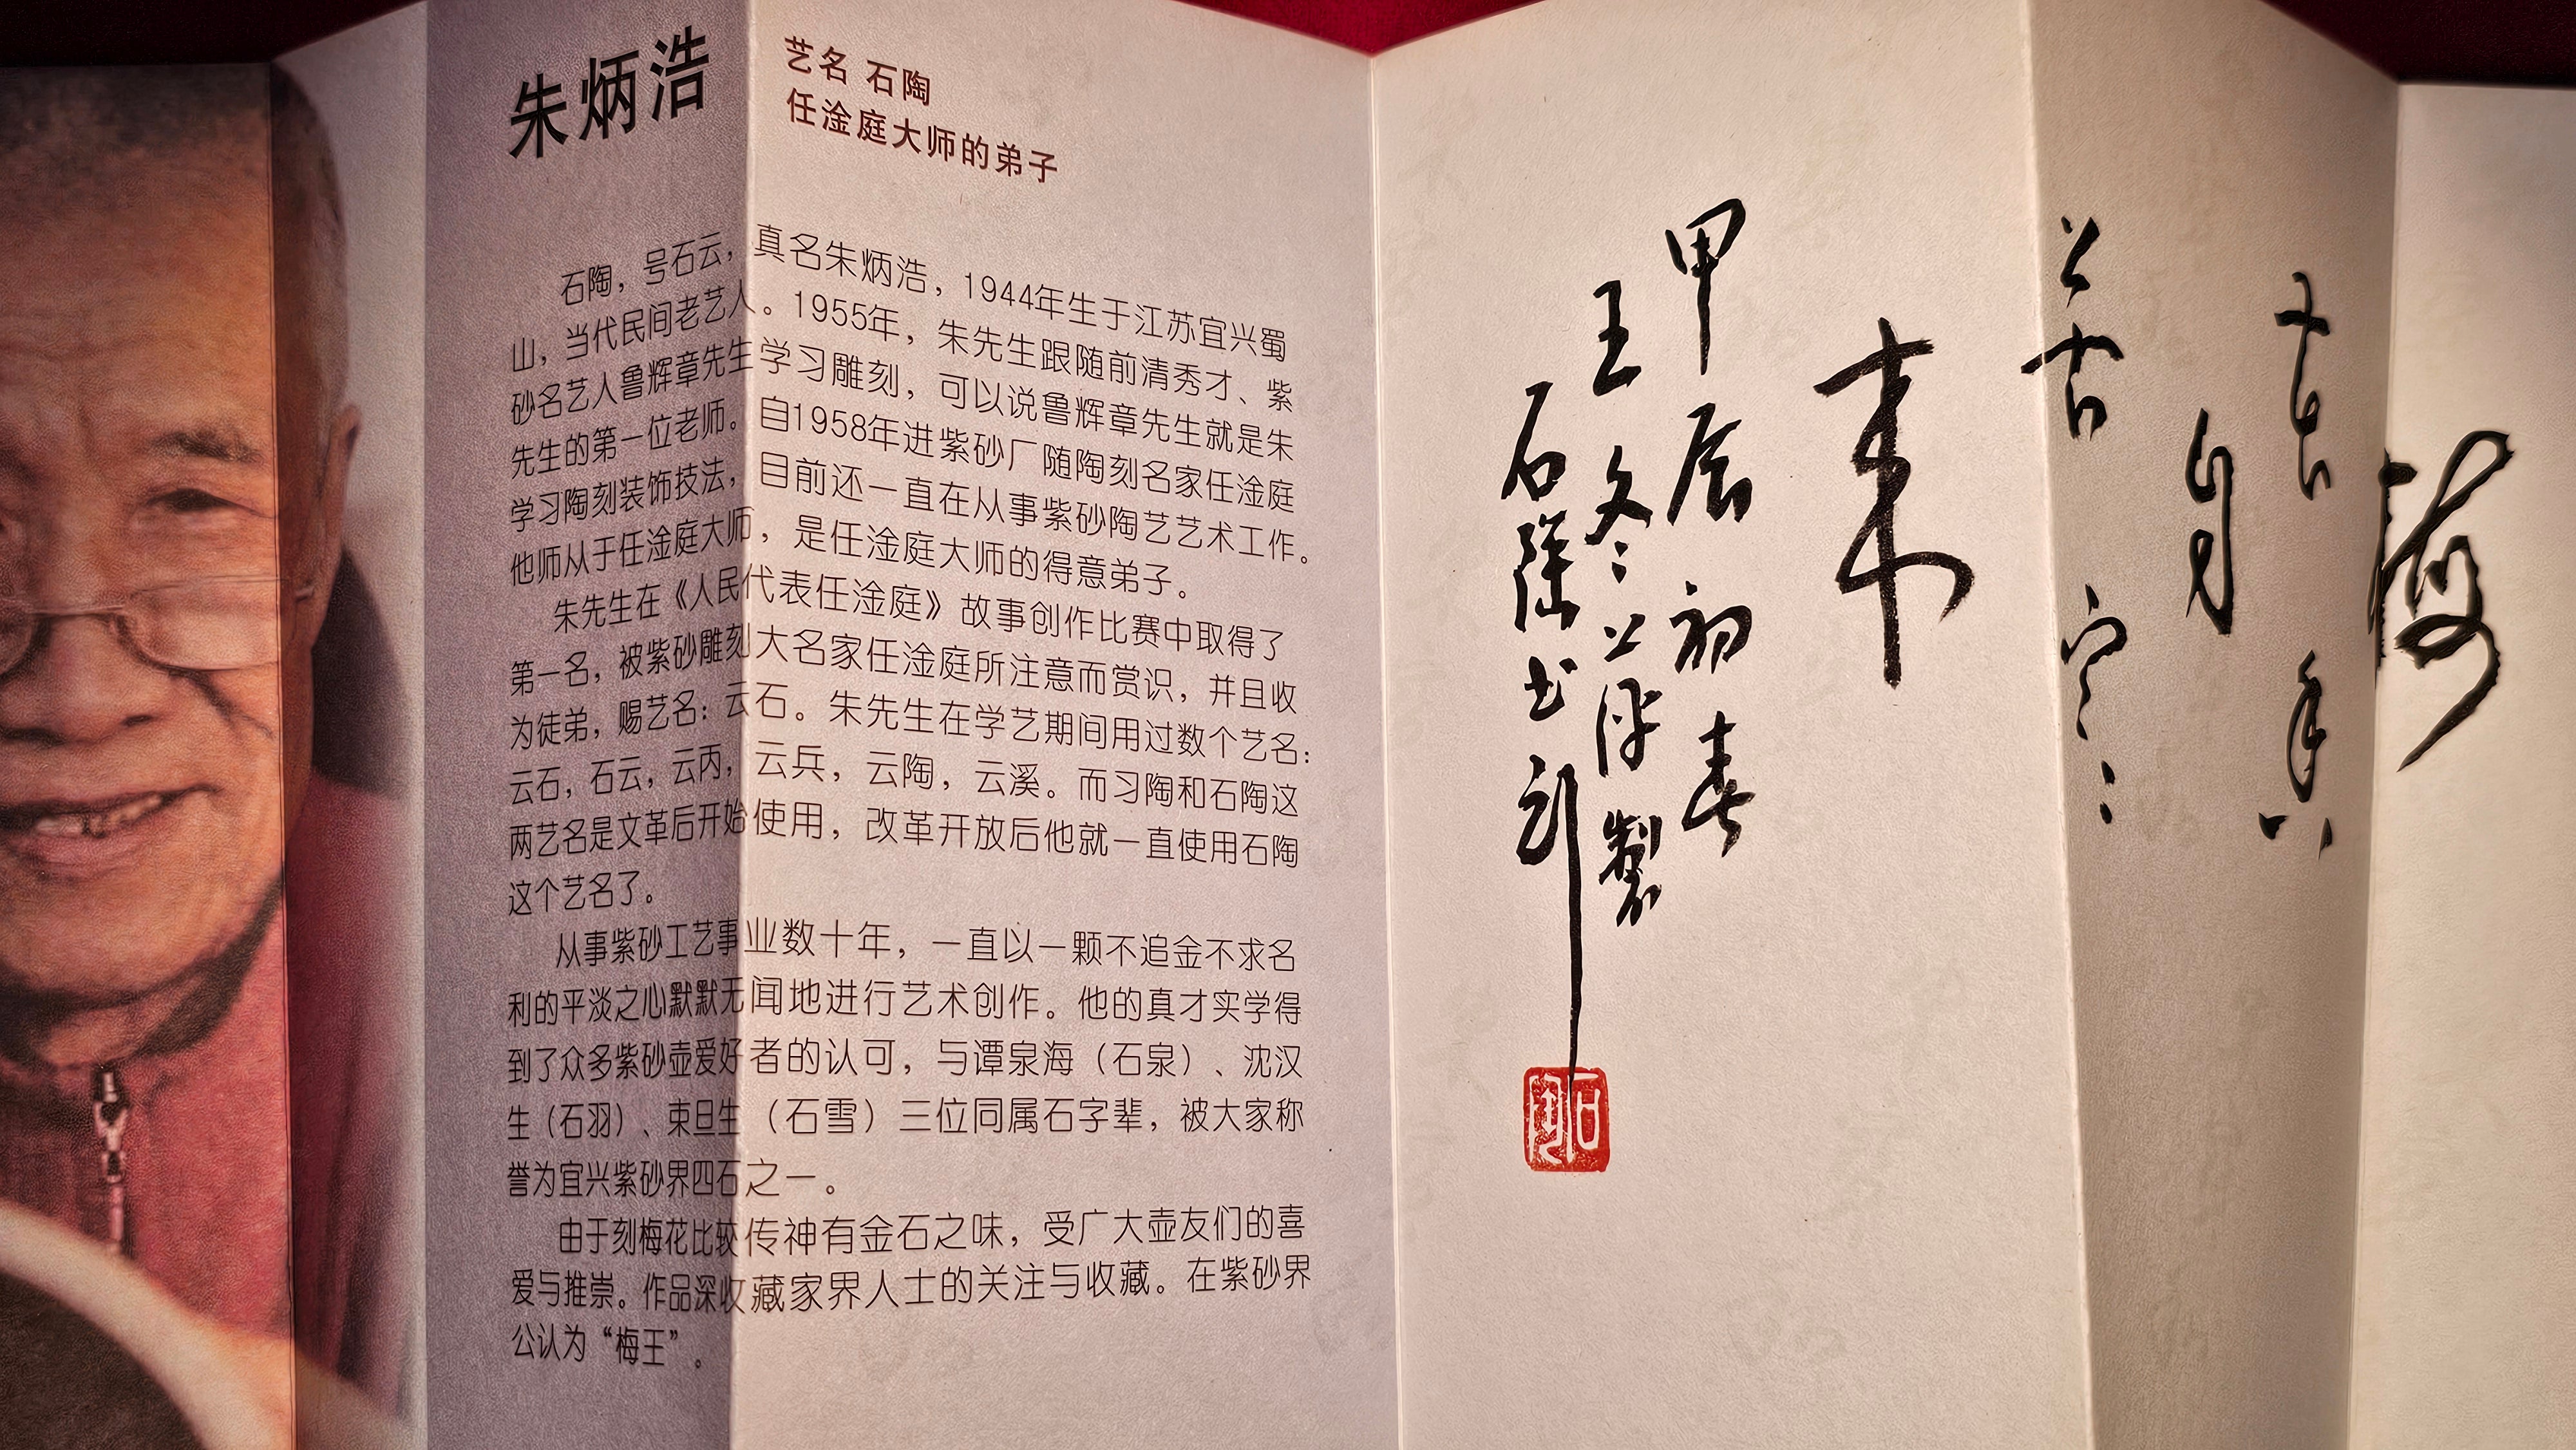 朱炳浩
艺名 石陶
任淦庭大师的弟子
石陶，号石云，真名朱炳浩，1944年生于江苏宜兴蜀
山，当代民间老艺人。1955年，朱先生跟随前清秀才、紫
砂名艺人鲁辉章先生学习雕刻，可以说鲁辉章先生就是朱
先生的第一位老师。自1958年进紫砂厂随陶刻名家任淦庭
学习陶刻装饰技法，目前还一直在从事紫砂陶艺艺术工作。
他师从于任淦庭大师，是任淦庭大师的得意弟子。
朱先生在《人民代表任淦庭》故事创作比赛中取得了
第一名，被紫砂雕刻大名家任淦庭所注意而赏识，并且收
为徒弟，赐艺名：云石。朱先生在学艺期间用过数个艺名：
云石，石云，云丙，云兵，云陶，云溪。而习陶和石陶这
两艺名是文革后开始使用，改革开放后他就一直使用石陶
这个艺名了。
从事紫砂工艺事业数十年，一直以一颗不追金不求名
利的平淡之心默默无闻地进行艺术创作。他的真才实学得
到了众多紫砂壶爱好者的认可，与谭泉海（石泉）、沈汉
生（石羽）、束旦生（石雪）三位同属石字辈，被大家称
誉为宜兴紫砂界四石之一。
由于刻梅花比较传神有金石之味，受广大壶友们的喜
爱与推崇。作品深收藏家界人士的关注与收藏。在紫砂界
公认为“梅王”。
梅
香
自
苦寒
来
甲辰初春
王冬
製
石陶书刻
石陶